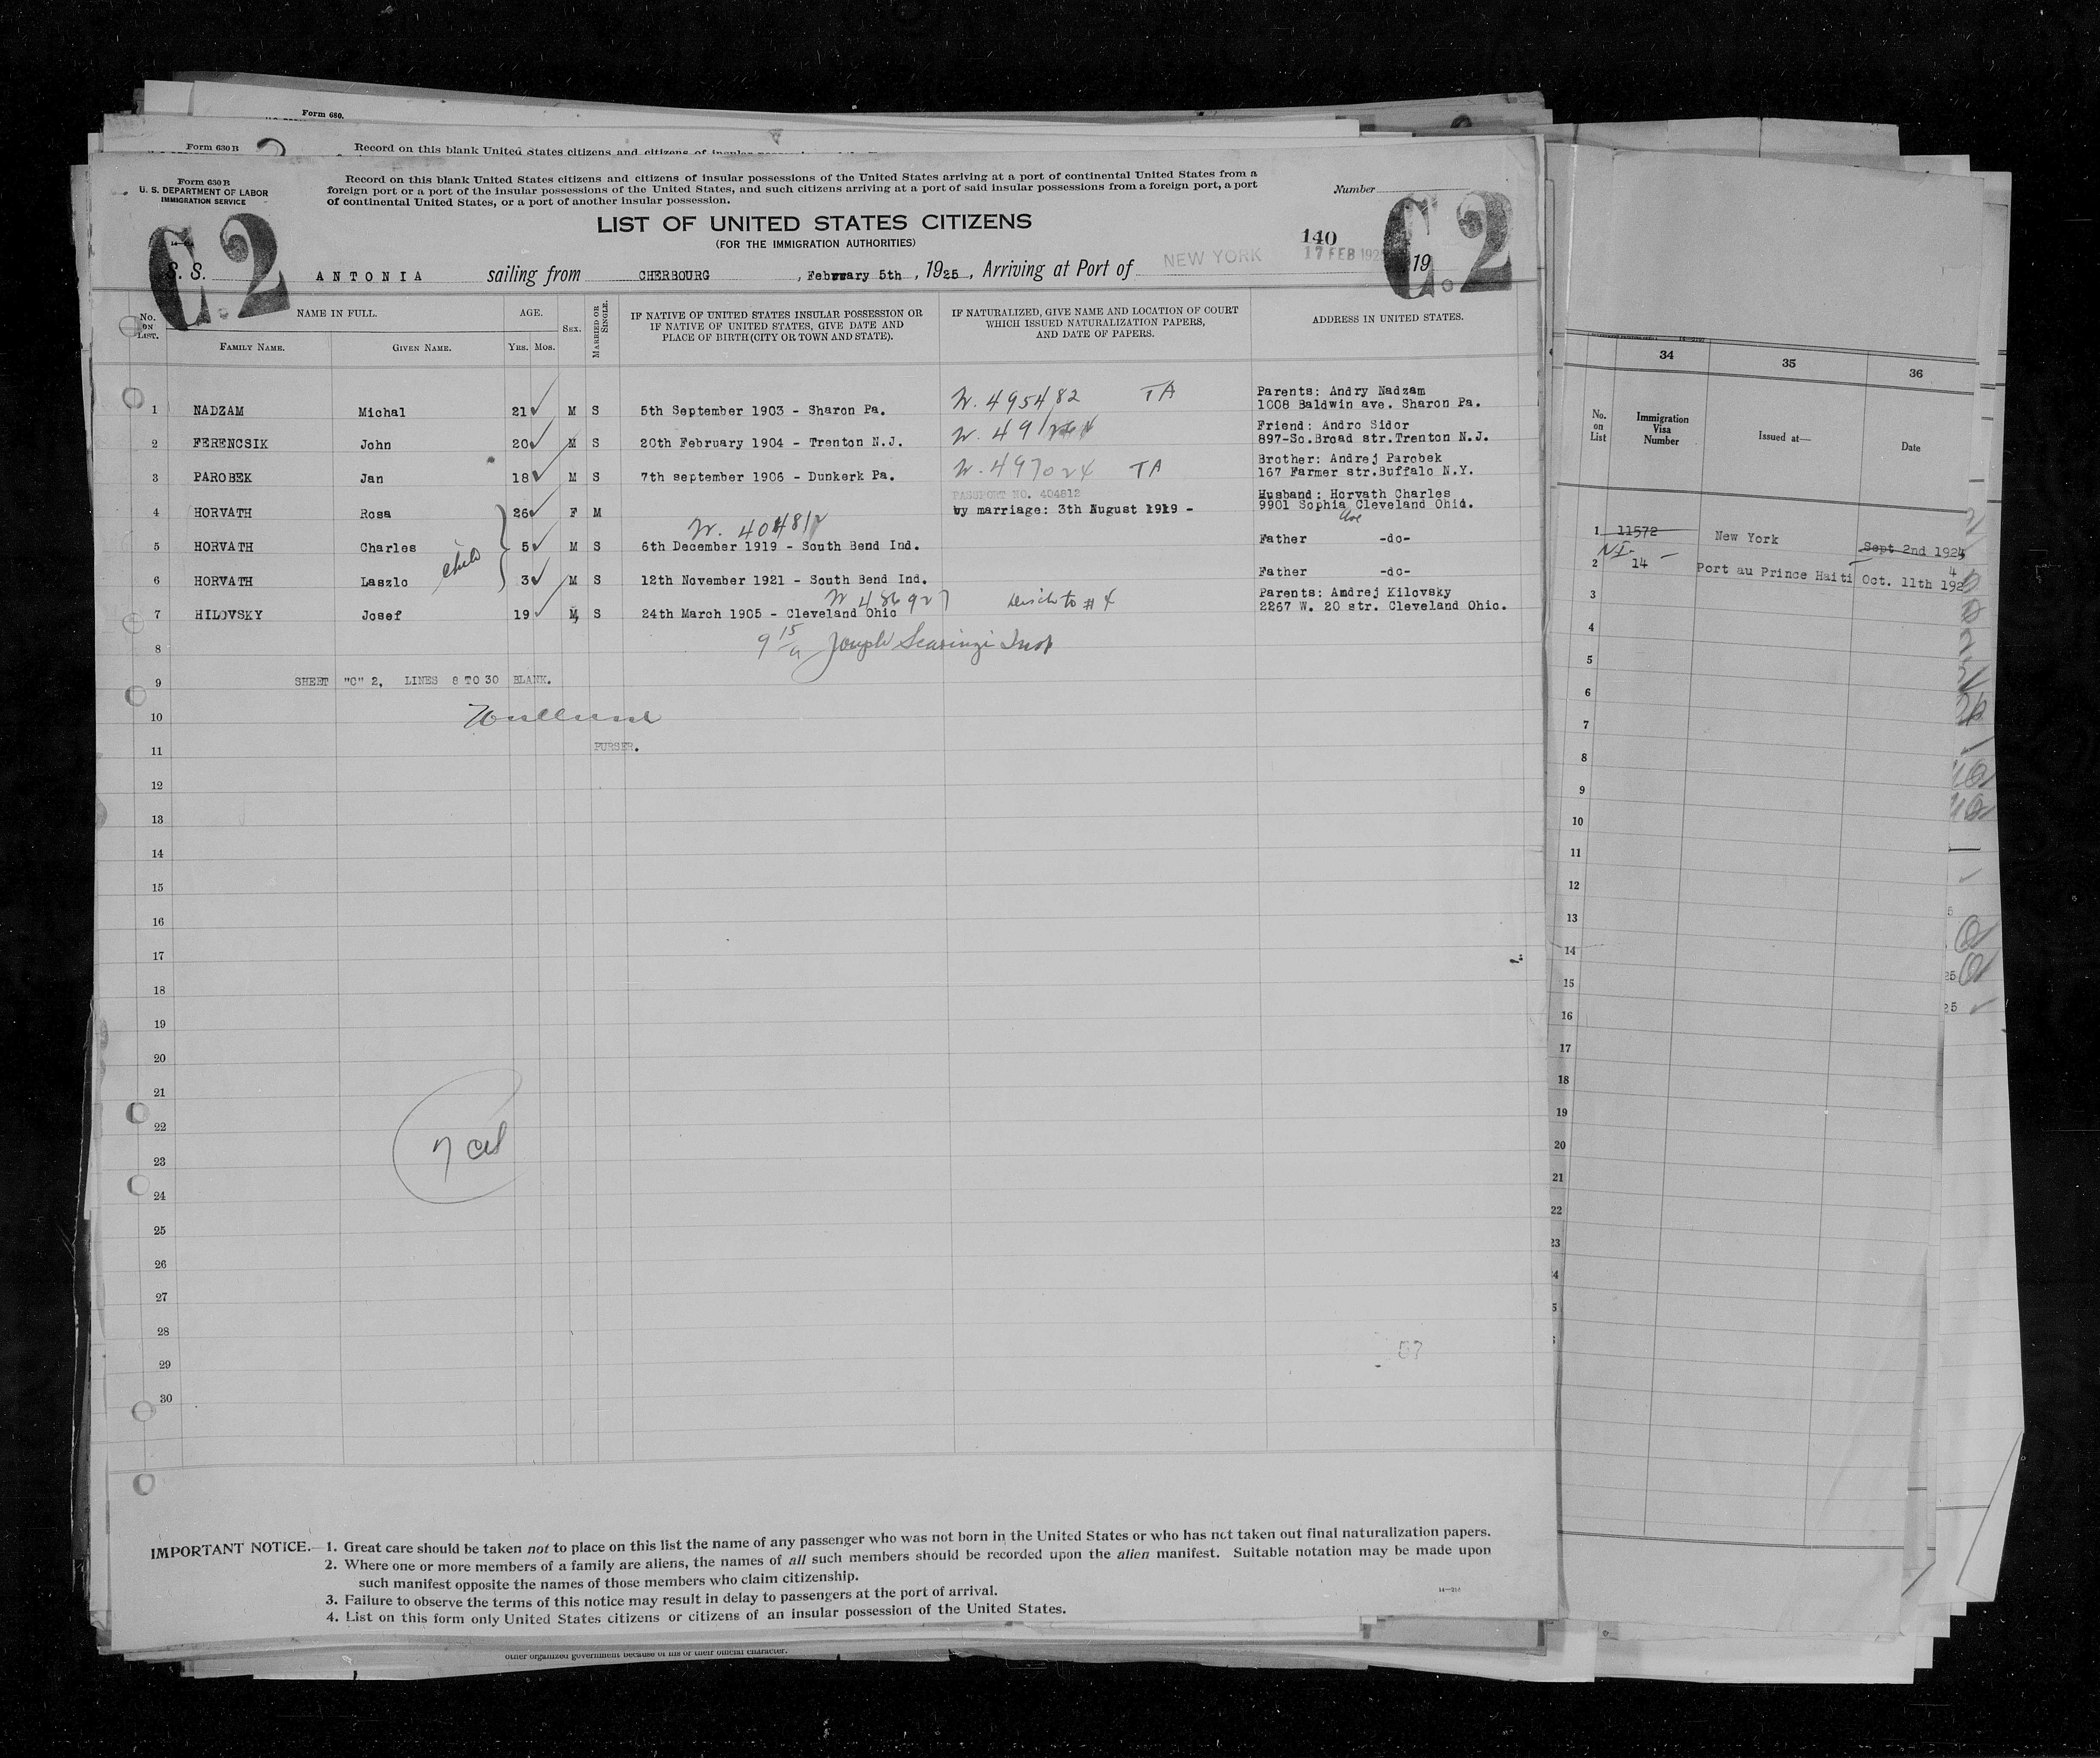 Form 680.
Form 630 B
Record on this blank United States citizens and citizens of insular
Form 630 B
U. S. DEPARTMENT OF LABOR
IMMIGRATION SERVICE
Record on this blank United States citizens and citizens of insular possessions of the United States arriving at a port of continental United States from a
foreign port or a port of the insular possessions of the United States, and such citizens arriving at a port of said insular possessions from a foreign port, a port
of continental United States, or a port of another insular possession.
Number
C.2
C.2
LIST OF UNITED STATES CITIZENS
(FOR THE IMMIGRATION AUTHORITIES)
140
17 FEB 1925
S. S. ANTONIA sailing from CHERBOURG, February 5th, 1925, Arriving at Port of NEW YORK 19
No. on List.
NAME IN FULL.
Family Name.
Given Name.
AGE.
Yrs. Mos.
Sex.
Married or Single.
IF NATIVE OF UNITED STATES INSULAR POSSESSION OR
IF NATIVE OF UNITED STATES, GIVE DATE AND
PLACE OF BIRTH (CITY OR TOWN AND STATE).
IF NATURALIZED, GIVE NAME AND LOCATION OF COURT
WHICH ISSUED NATURALIZATION PAPERS,
AND DATE OF PAPERS.
ADDRESS IN UNITED STATES.
Parents: Andry Nadzam
1 NADZAM Michal 21 M S 5th September 1903 - Sharon Pa. W. 495482 TA 1008 Baldwin ave. Sharon Pa.
Friend: Andro Sidor
2 FERENCSIK John 20 M S 20th February 1904 - Trenton N.J. 897-So.Broad str.Trenton N.J.
Brother: Andrej Parobek
3 PAROBEK Jan 18 M S 7th september 1906 - Dunkerk Pa. W. 497024 TA 167 Farmer str.Buffalo N.Y.
PASSPORT NO. 404812 Husband: Horvath Charles
4 HORVATH Rosa 26 F M by marriage: 3th August 1919 - 9901 Sophia Cleveland Ohio.
Ave
W. 404812
5 HORVATH Charles 5 M S 6th December 1919 - South Bend Ind. Father -do-
child
6 HORVATH Laszlo 3 M S 12th November 1921 - South Bend Ind. Father -do-
W 486927 to # 4 Parents: Andrej Kilovsky
7 HILOVSKY Josef 19 M S 24th March 1905 - Cleveland Ohio 2267 W. 20 str. Cleveland Ohio.
8 9 15 Joseph Insp
9 SHEET "C" 2, LINES 8 TO 30 BLANK.
10
11 PURSER.
12
13
14
15
16
17
18
19
20
21
22
23
24
25
26
27
28
29
30
7
57
IMPORTANT NOTICE.—1. Great care should be taken not to place on this list the name of any passenger who was not born in the United States or who has not taken out final naturalization papers.
2. Where one or more members of a family are aliens, the names of all such members should be recorded upon the alien manifest. Suitable notation may be made upon
such manifest opposite the names of those members who claim citizenship.
3. Failure to observe the terms of this notice may result in delay to passengers at the port of arrival.
4. List on this form only United States citizens or citizens of an insular possession of the United States.
other organized government because of his or their official character.
34 35 36
No. on List
Immigration Visa Number
Issued at—
Date
1 11572 New York Sept 2nd 1924
NI-
2 14 Port au Prince Haiti Oct. 11th 1924
3
4
5
6
7
8
9
10
11
12
13
14
15
16
17
18
19
20
21
22
23
25
25